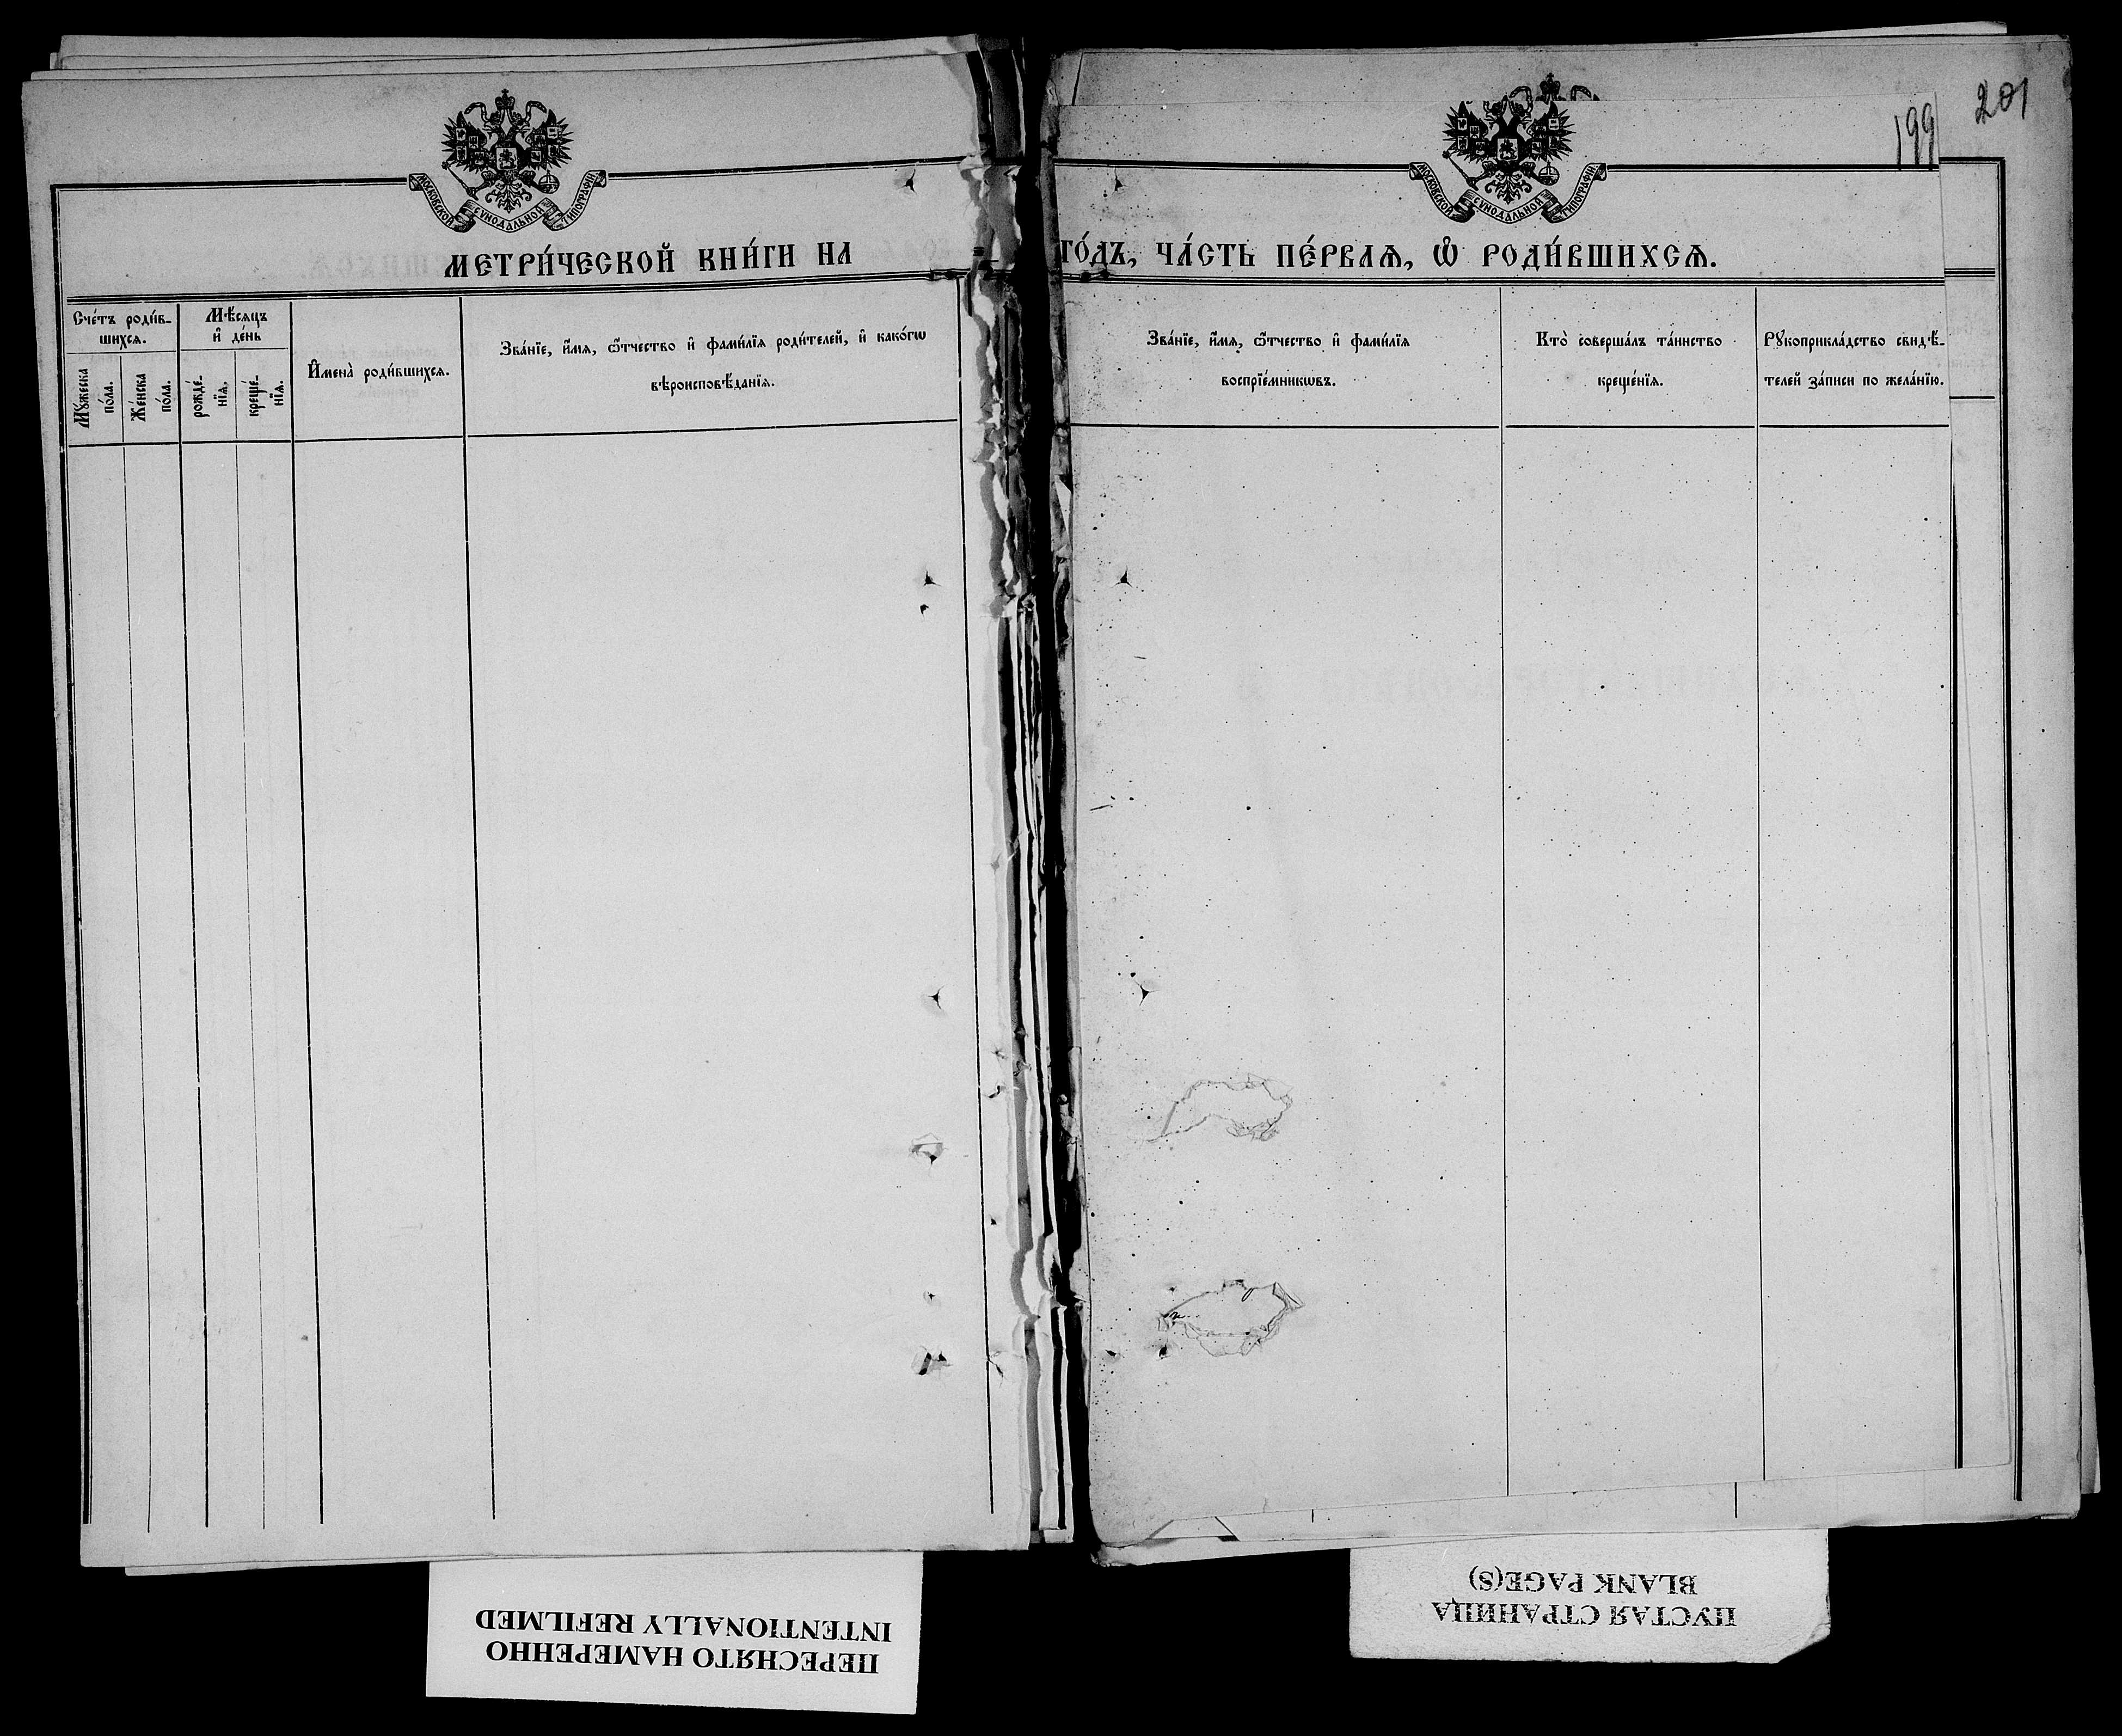 199
201
МОСКОВСКОЙ СѴНОДАЛЬНОЙ ТИПОГРАФІИ
МОСКОВСКОЙ СѴНОДАЛЬНОЙ ТИПОГРАФІИ
МЕТРИ́ЧЕСКОЙ КНИ́ГИ НА
ГО́ДЪ, ЧА́СТЬ ПЕ́РВАѦ, Ѽ РОДИ́ВШИХСѦ.
Сче́тъ роди́в-
шихсѧ.
Мꙋ́жеска
по́ла.
Же́нска
по́ла.
Мѣ́сѧцъ
и҆ де́нь
рожде́-
нїѧ.
креще́-
нїѧ.
И҆мена̀ роди́вшихсѧ.
Зва́нїе, и҆́мѧ, ѻ҆́тчество и҆ фами́лїѧ роди́телей, и҆ како́гѡ
вѣроисповѣ́данїѧ.
Зва́нїе, и҆́мѧ, ѻ҆́тчество и҆ фами́лїѧ
воспрїе́мникѡвъ.
Кто̀ соверша́лъ та́инство
креще́нїѧ.
Рꙋкоприкла́дство свидѣ́-
телей за́писи по жела́нїю.
ПЕРЕСНЯТО НАМЕРЕННО
INTENTIONALLY REFILMED
ПУСТАЯ СТРАНИЦА
BLANK PAGE(S)